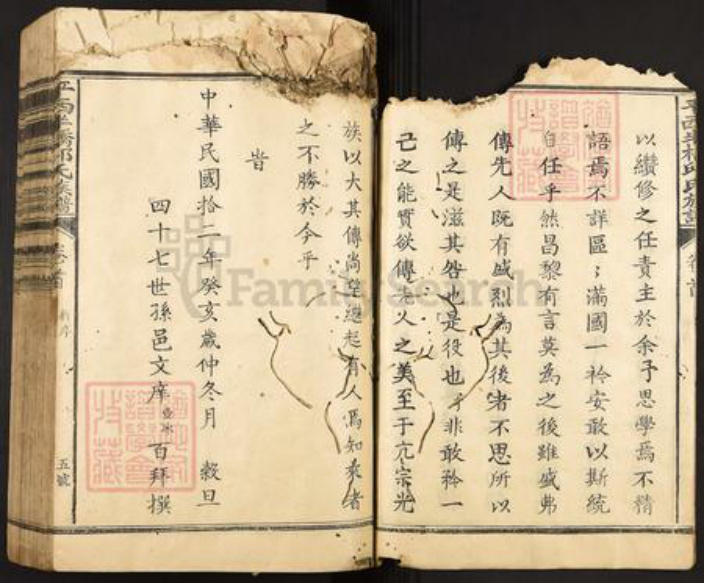 以纘修之任責主於余予思學焉不精
語焉不詳區〻滿國一衿安敢以斯統
自任乎然昌黎有言莫為之後雖盛弗
傳先人既有盛烈為其後者不思所以
傳之是滋其咎也是役也予非敢矜一
己之能實欲傳先人之美至于亢宗光
族以大其傳尚望繼起有人焉知來者
之不勝於今乎
旹
中華民國拾二年癸亥歲仲冬月 穀旦
四十七世孫邑文庠 百拜撰
卷首
五號
FamilySearch